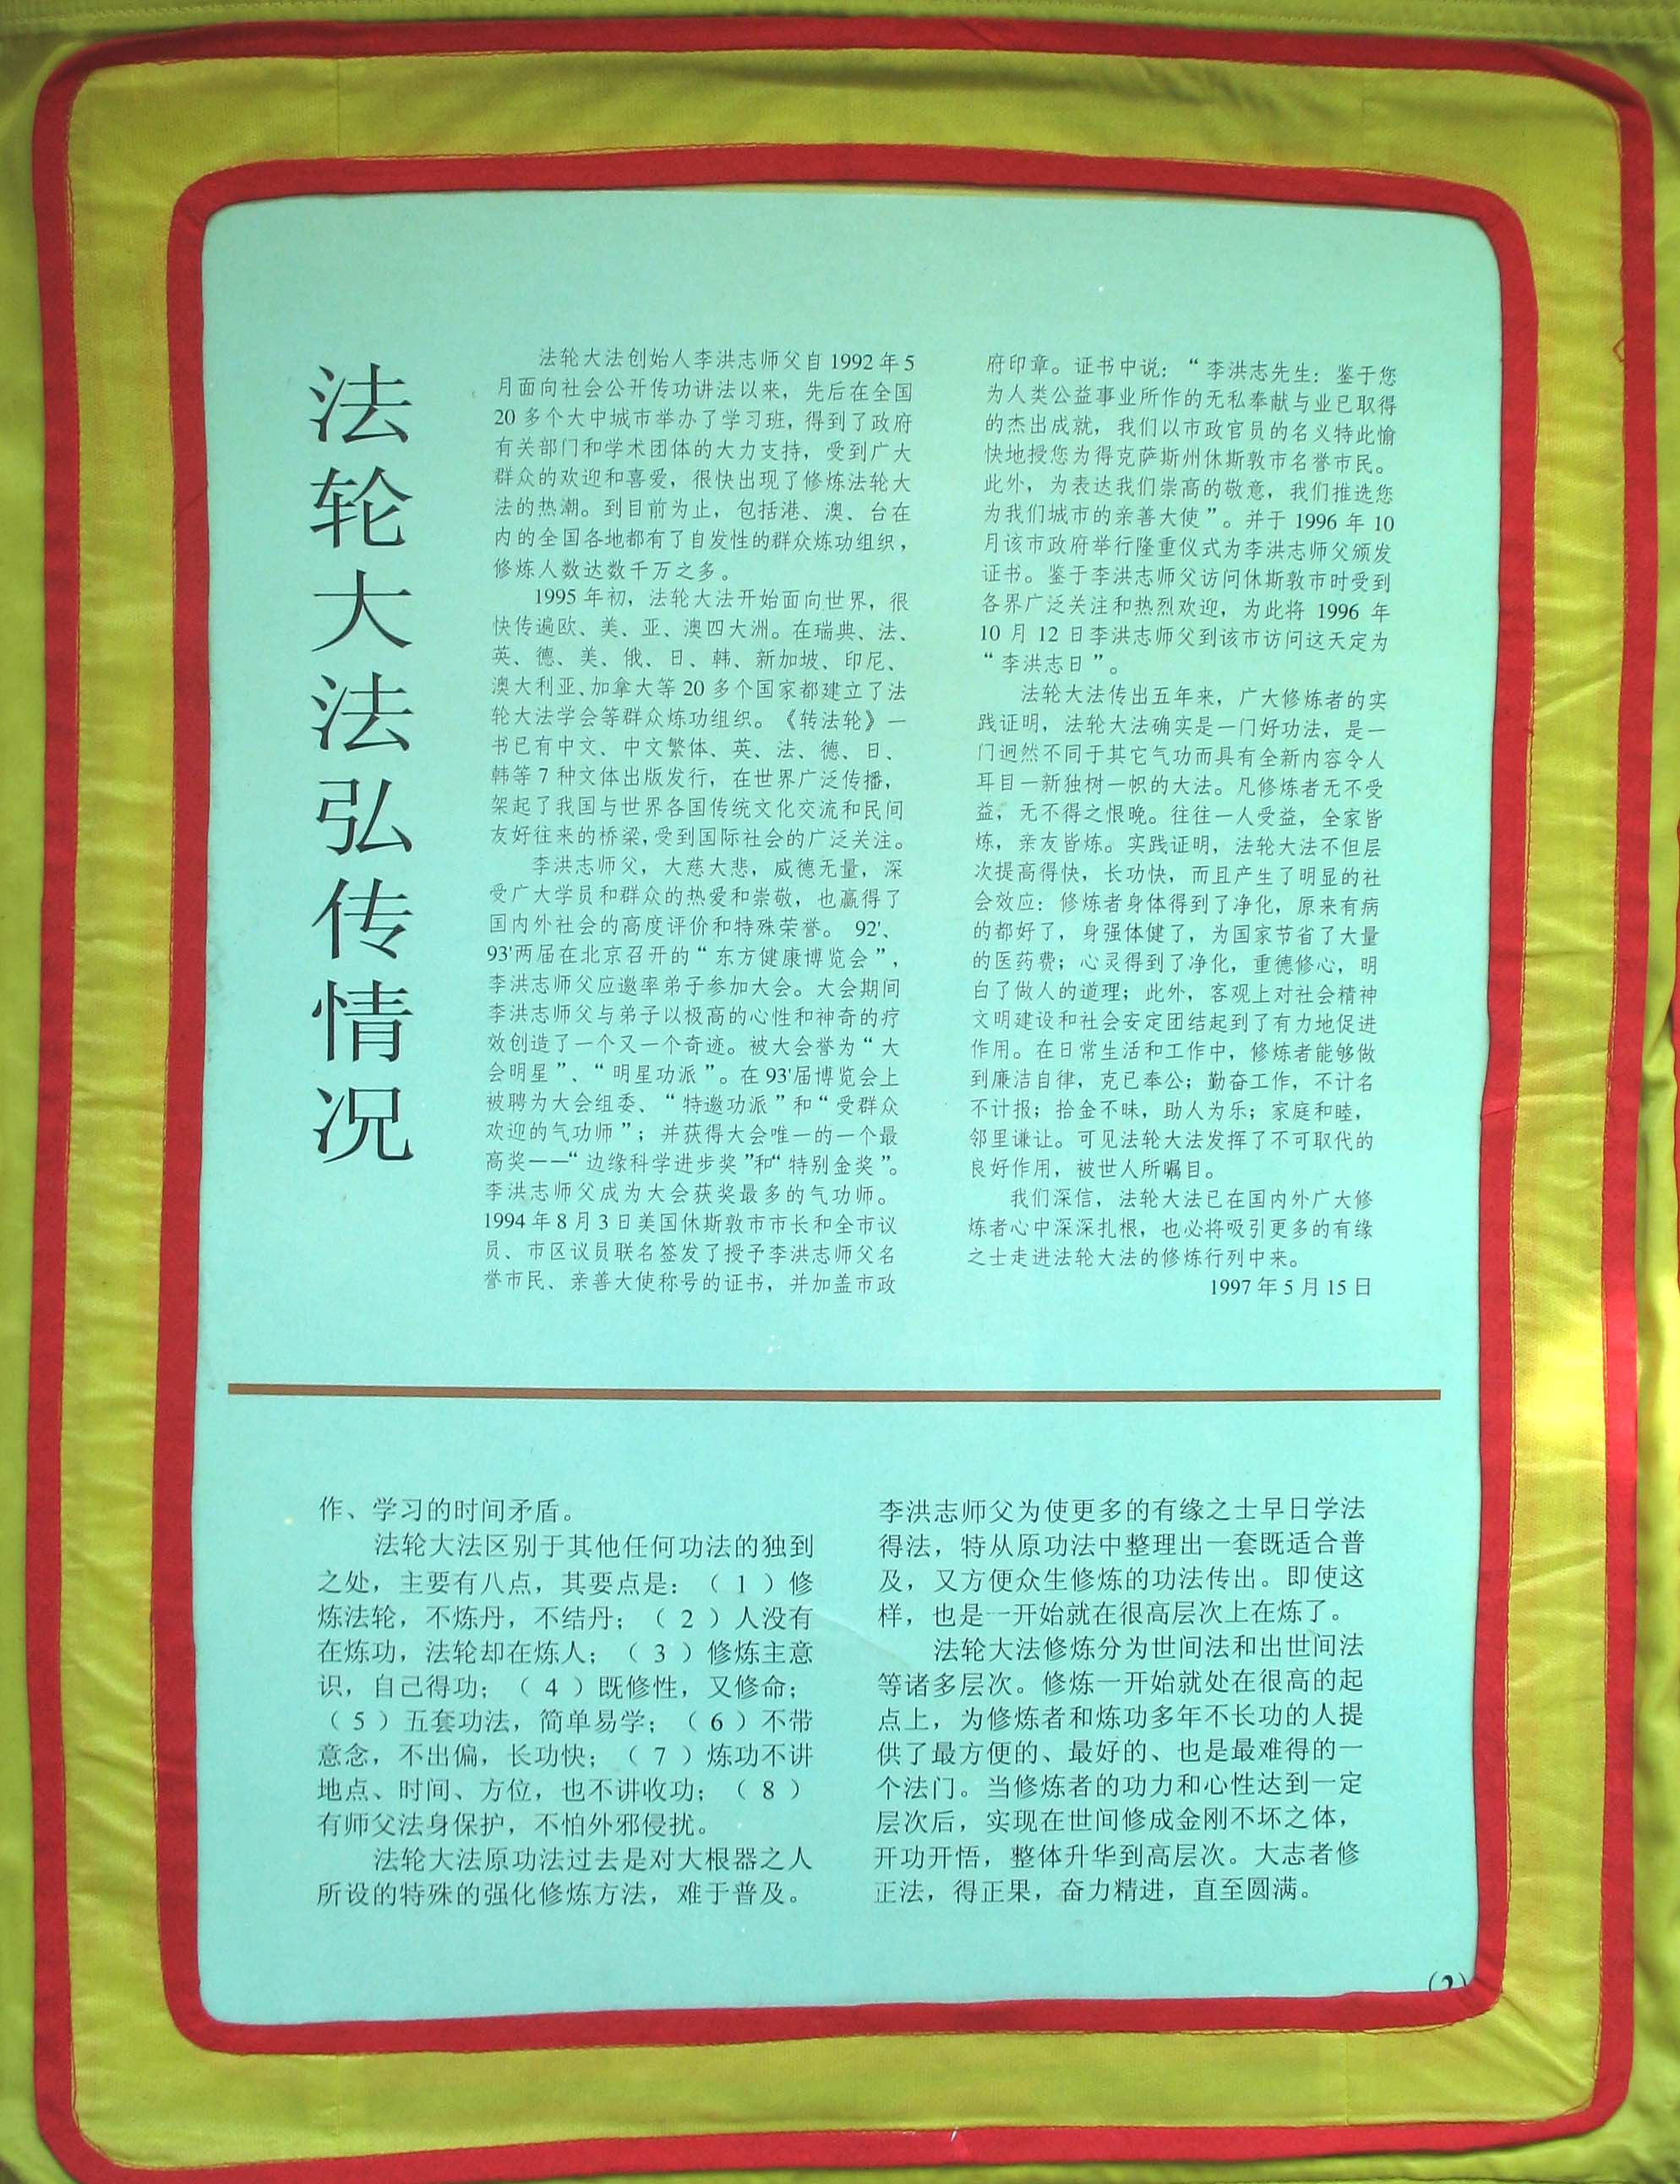 法轮大法弘传情况
法轮大法创始人李洪志师父自 1992 年 5
月面向社会公开传功讲法以来，先后在全国
20 多个大中城市举办了学习班，得到了政府
有关部门和学术团体的大力支持，受到广大
群众的欢迎和喜爱，很快出现了修炼法轮大
法的热潮。到目前为止，包括港、澳、台在
内的全国各地都有了自发性的群众炼功组织，
修炼人数达数千万之多。
1995 年初，法轮大法开始面向世界，很
快传遍欧、美、亚、澳四大洲。在瑞典、法、
英、德、美、俄、日、韩、新加坡、印尼、
澳大利亚、加拿大等 20 多个国家都建立了法
轮大法学会等群众炼功组织。《转法轮》一
书已有中文、中文繁体、英、法、德、日、
韩等 7 种文体出版发行，在世界广泛传播，
架起了我国与世界各国传统文化交流和民间
友好往来的桥梁，受到国际社会的广泛关注。
李洪志师父，大慈大悲，威德无量，深
受广大学员和群众的热爱和崇敬，也赢得了
国内外社会的高度评价和特殊荣誉。 92'、
93'两届在北京召开的“东方健康博览会”，
李洪志师父应邀率弟子参加大会。大会期间
李洪志师父与弟子以极高的心性和神奇的疗
效创造了一个又一个奇迹。被大会誉为“大
会明星”、“明星功派”。在 93'届博览会上
被聘为大会组委、“特邀功派”和“受群众
欢迎的气功师”；并获得大会唯一的一个最
高奖——“边缘科学进步奖”和“特别金奖”。
李洪志师父成为大会获奖最多的气功师。
1994 年 8 月 3 日美国休斯敦市市长和全市议
员、市区议员联名签发了授予李洪志师父名
誉市民、亲善大使称号的证书，并加盖市政
府印章。证书中说：“李洪志先生：鉴于您
为人类公益事业所作的无私奉献与业已取得
的杰出成就，我们以市政官员的名义特此愉
快地授您为得克萨斯州休斯敦市名誉市民。
此外，为表达我们崇高的敬意，我们推选您
为我们城市的亲善大使”。并于 1996 年 10
月该市政府举行隆重仪式为李洪志师父颁发
证书。鉴于李洪志师父访问休斯敦市时受到
各界广泛关注和热烈欢迎，为此将 1996 年
10 月 12 日李洪志师父到该市访问这天定为
“李洪志日”。
法轮大法传出五年来，广大修炼者的实
践证明，法轮大法确实是一门好功法，是一
门迥然不同于其它气功而具有全新内容令人
耳目一新独树一帜的大法。凡修炼者无不受
益，无不得之恨晚。往往一人受益，全家皆
炼，亲友皆炼。实践证明，法轮大法不但层
次提高得快，长功快，而且产生了明显的社
会效应：修炼者身体得到了净化，原来有病
的都好了，身强体健了，为国家节省了大量
的医药费；心灵得到了净化，重德修心，明
白了做人的道理；此外，客观上对社会精神
文明建设和社会安定团结起到了有力地促进
作用。在日常生活和工作中，修炼者能够做
到廉洁自律，克已奉公；勤奋工作，不计名
不计报；拾金不昧，助人为乐；家庭和睦，
邻里谦让。可见法轮大法发挥了不可取代的
良好作用，被世人所嘱目。
我们深信，法轮大法已在国内外广大修
炼者心中深深扎根，也必将吸引更多的有缘
之士走进法轮大法的修炼行列中来。
1997 年 5 月 15 日
作、学习的时间矛盾。
法轮大法区别于其他任何功法的独到
之处，主要有八点，其要点是：（1）修
炼法轮，不炼丹，不结丹；（2）人没有
在炼功，法轮却在炼人；（3）修炼主意
识，自己得功；（4）既修性，又修命；
（5）五套功法，简单易学；（6）不带
意念，不出偏，长功快；（7）炼功不讲
地点、时间、方位，也不讲收功；（8）
有师父法身保护，不怕外邪侵扰。
法轮大法原功法过去是对大根器之人
所设的特殊的强化修炼方法，难于普及。
李洪志师父为使更多的有缘之士早日学法
得法，特从原功法中整理出一套既适合普
及，又方便众生修炼的功法传出。即使这
样，也是一开始就在很高层次上在炼了。
法轮大法修炼分为世间法和出世间法
等诸多层次。修炼一开始就处在很高的起
点上，为修炼者和炼功多年不长功的人提
供了最方便的、最好的、也是最难得的一
个法门。当修炼者的功力和心性达到一定
层次后，实现在世间修成金刚不坏之体，
开功开悟，整体升华到高层次。大志者修
正法，得正果，奋力精进，直至圆满。
(2)